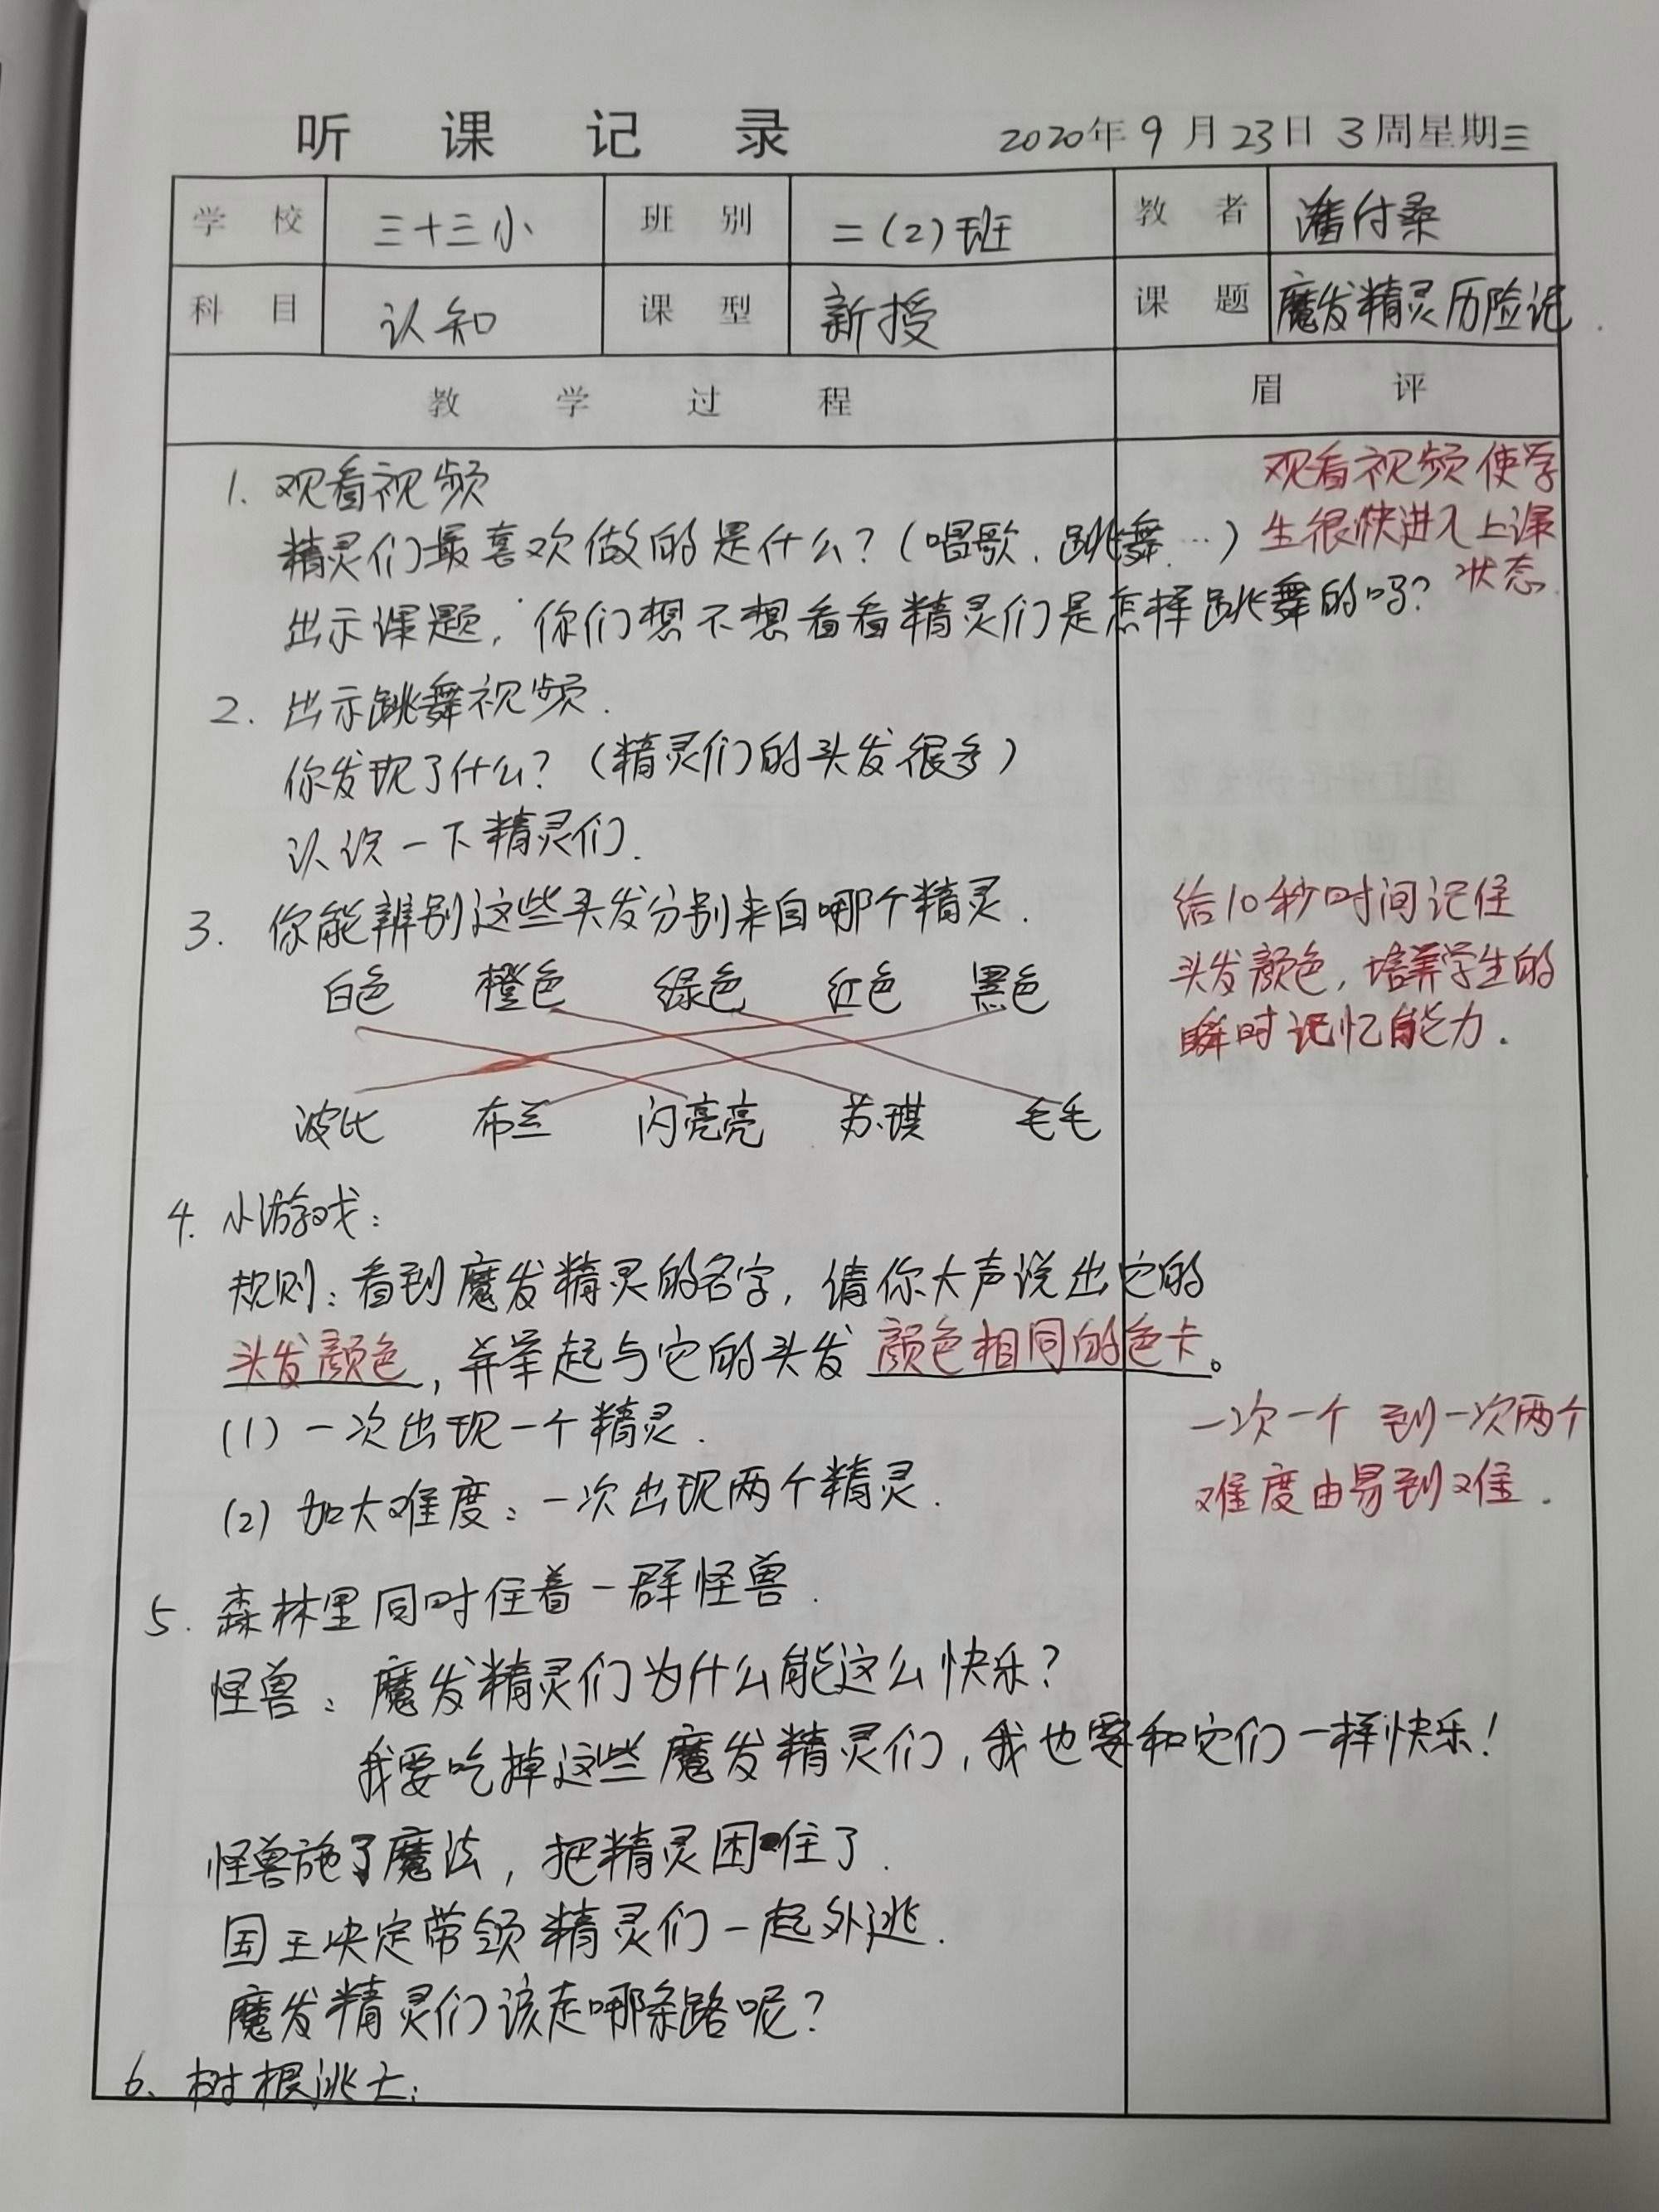 听课记录 2020年9月23日 3周星期三
学校 三十三小 班别 二(2)班 教者 潘付桑
科目 认知 课型 新授 课题 魔发精灵历险记.
教学过程 眉评
1. 观看视频
精灵们最喜欢做的是什么?(唱歌、跳舞…)
出示课题,你们想不想看看精灵们是怎样跳舞的吗?
观看视频使学
生很快进入上课
状态.
2. 出示跳舞视频.
你发现了什么?(精灵们的头发很多)
认识一下精灵们.
3. 你能辨别这些头发分别来自哪个精灵.
白色 橙色 绿色 红色 黑色
波比 布兰 闪亮亮 苏琪 毛毛
给10秒时间记住
头发颜色,培养学生的
瞬时记忆能力.
4. 小游戏:
规则:看到魔发精灵的名字,请你大声说出它的
头发颜色,并举起与它的头发颜色相同的色卡。
(1) 一次出现一个精灵.
(2) 加大难度:一次出现两个精灵.
一次一个到一次两个
难度由易到难.
5. 森林里同时住着一群怪兽.
怪兽:魔发精灵们为什么能这么快乐?
我要吃掉这些魔发精灵们,我也要和它们一样快乐!
怪兽施了魔法,把精灵困住了.
国王决定带领精灵们一起外逃.
魔发精灵们该走哪条路呢?
6、树根逃亡: